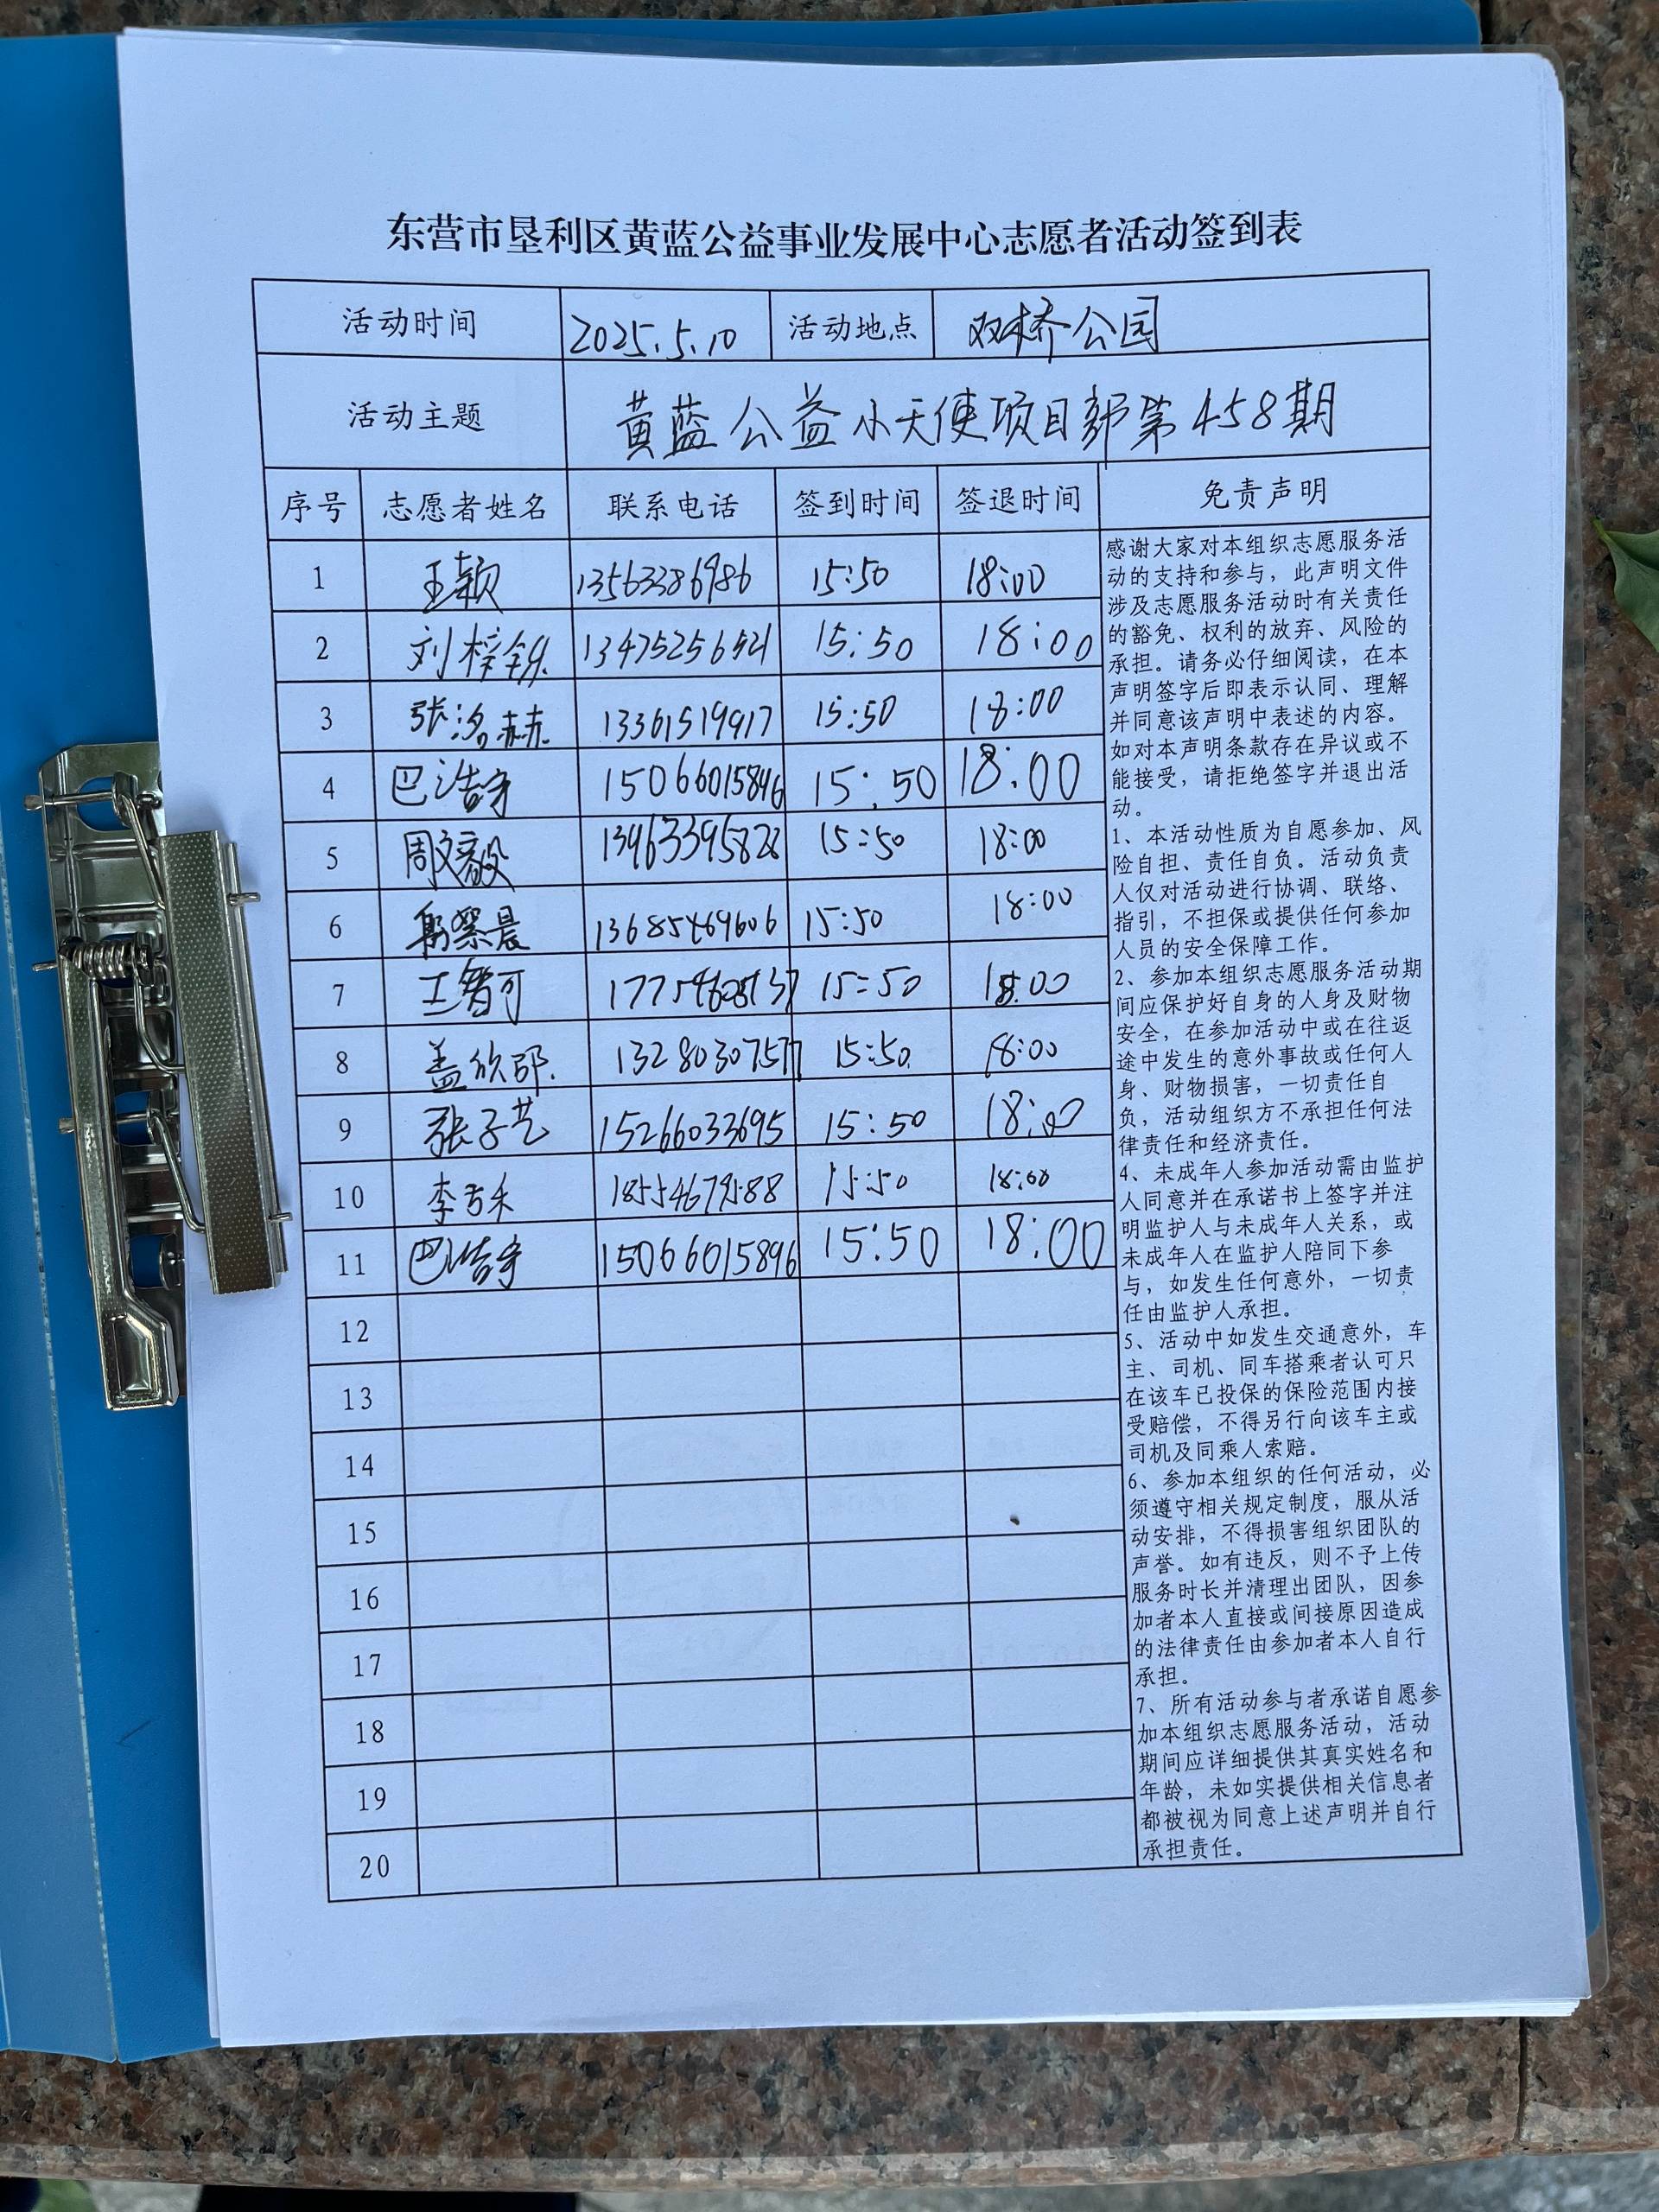 东营市垦利区黄蓝公益事业发展中心志愿者活动签到表
活动时间 2025.5.10 活动地点 双桥公园
活动主题 黄蓝公益小天使项目部第458期
序号 志愿者姓名 联系电话 签到时间 签退时间 免责声明
1 王颖 13563386986 15:50 18:00
2 刘梓铄 13475256521 15:50 18:00
3 张洛赫 13361519917 15:50 18:00
4 巴浩宇 15066015896 15:50 18:00
5 周文毅 13963395828 15:50 18:00
6 15:50 18:00
7 15:50 18:00
8 盖欣 13280307577 15:50 18:00
9 张子艺 15266033695 15:50 18:00
10 李吉禾 15:50 18:00
11 巴浩宇 15066015896 15:50 18:00
12
13
14
15
16
17
18
19
20
感谢大家对本组织志愿服务活
动的支持和参与，此声明文件
涉及志愿服务活动时有关责任
的豁免、权利的放弃、风险的
承担。请务必仔细阅读，在本
声明签字后即表示认同、理解
并同意该声明中表述的内容。
如对本声明条款存在异议或不
能接受，请拒绝签字并退出活
动。
1、本活动性质为自愿参加、风
险自担、责任自负。活动负责
人仅对活动进行协调、联络、
指引，不担保或提供任何参加
人员的安全保障工作。
2、参加本组织志愿服务活动期
间应保护好自身的人身及财物
安全，在参加活动中或在往返
途中发生的意外事故或任何人
身、财物损害，一切责任自
负，活动组织方不承担任何法
律责任和经济责任。
4、未成年人参加活动需由监护
人同意并在承诺书上签字并注
明监护人与未成年人关系，或
未成年人在监护人陪同下参
与，如发生任何意外，一切责
任由监护人承担。
5、活动中如发生交通意外，车
主、司机、同车搭乘者认可只
在该车已投保的保险范围内接
受赔偿，不得另行向该车主或
司机及同乘人索赔。
6、参加本组织的任何活动，必
须遵守相关规定制度，服从活
动安排，不得损害组织团队的
声誉。如有违反，则不予上传
服务时长并清理出团队，因参
加者本人直接或间接原因造成
的法律责任由参加者本人自行
承担。
7、所有活动参与者承诺自愿参
加本组织志愿服务活动，活动
期间应详细提供其真实姓名和
年龄，未如实提供相关信息者
都被视为同意上述声明并自行
承担责任。